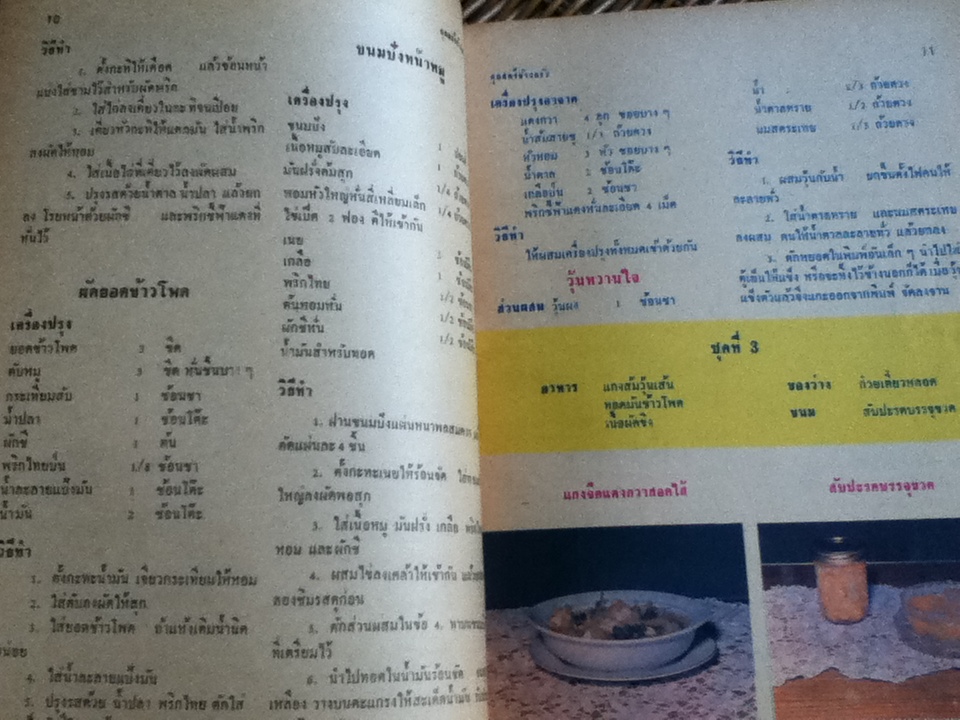 10
วิธีทำ
1. ตั้งกะทิให้เดือด แล้วช้อนหน้า
แบ่งใส่ชามไว้สำหรับผัดพริก
2. ใส่ไก่ลงเคี่ยวในกะทิจนเปื่อย
3. เคี่ยวหัวกะทิให้แตกมัน ใส่น้ำพริก
ลงผัดให้หอม
4. ใส่เนื้อไก่ที่เคี่ยวไว้ลงผัดผสม
5. ปรุงรสด้วยน้ำตาล น้ำปลา แล้วยก
ลง โรยหน้าด้วยผักชี และพริกชี้ฟ้าแดงที่
หั่นไว้
ผัดยอดข้าวโพด
เครื่องปรุง
ยอดข้าวโพด 2 ขีด
ตับหมู 3 ขีด หั่นชิ้นบาง ๆ
กระเทียมสับ 1 ช้อนชา
น้ำปลา 1 ช้อนโต๊ะ
ผักชี 1 ต้น
พริกไทยป่น 1/8 ช้อนชา
น้ำละลายแป้งมัน 1 ช้อนโต๊ะ
น้ำมัน 2 ช้อนโต๊ะ
วิธีทำ
1. ตั้งกะทะน้ำมัน เจียวกระเทียมให้หอม
2. ใส่ตับลงผัดให้สุก
3. ใส่ยอดข้าวโพด ถ้าแห้งเติมน้ำนิด
หน่อย
4. ใส่น้ำละลายแป้งมัน
5. ปรุงรสด้วย น้ำปลา พริกไทย ตักใส่
ขนมปังหน้าหมู
เครื่องปรุง
ขนมปัง 1
เนื้อหมูสับละเอียด 1
มันฝรั่งต้มสุก 1/4
หอมหัวใหญ่หั่นสี่เหลี่ยมเล็ก 1/4
ไข่เป็ด 2 ฟอง ตีให้เข้ากัน
เนย
เกลือ 1
พริกไทย 1/2
ต้นหอมหั่น 1/2
ผักชีหั่น 1/2
น้ำมันสำหรับทอด
วิธีทำ
1. ฝานขนมปังแผ่นหนาพอสมควร
ตัดแผ่นละ 4 ชิ้น
2. ตั้งกะทะเนยให้ร้อนจัด
ใหญ่ลงผัดพอสุก
3. ใส่เนื้อหมู มันฝรั่ง เกลือ
หอม และผักชี
4. ผสมไข่ลงเคล้าให้เข้ากัน
ลองชิมรสดูก่อน
5. ตักส่วนผสมในข้อ 4.
ที่เตรียมไว้
6. นำไปทอดในน้ำมันร้อนจัด
เหลือง วางบนตะแกรงให้สะเด็ดน้ำมัน
11
เครื่องปรุงอาจาด
แตงกวา 4 ลูก ซอยบาง ๆ
น้ำส้มสายชู 1/1 ถ้วยตวง
หัวหอม 3 หัว ซอยบาง ๆ
น้ำตาล 2 ช้อนโต๊ะ
เกลือป่น 2 ช้อนชา
พริกชี้ฟ้าแดงหั่นละเอียด 4 เม็ด
วิธีทำ
ให้ผสมเครื่องปรุงทั้งหมดเข้าด้วยกัน
วุ้นหวานใจ
ส่วนผสม วุ้นผง 1 ช้อนชา
น้ำ 2/3 ถ้วยตวง
น้ำตาลทราย 1/2 ถ้วยตวง
นมสดระเหย 1/3 ถ้วยตวง
วิธีทำ
1. ผสมวุ้นกับน้ำ ยกขึ้นตั้งไฟคนให้
ละลายทั่ว
2. ใส่น้ำตาลทราย และนมสดระเหย
ลงผสม คนให้น้ำตาลละลายทั่ว แล้วยกลง
3. ตักหยอดในพิมพ์อันเล็ก ๆ นำไปใส่
ตู้เย็นให้แข็ง หรือจะทิ้งไว้ข้างนอกก็ได้ เมื่อ
แข็งตัวแล้วจึงแกะออกจากพิมพ์ จัดลงจาน
ชุดที่ 3
อาหาร แกงส้มวุ้นเส้น
ทอดมันข้าวโพด
เนื้อผัดขิง
ของว่าง ก๋วยเตี๋ยวหลอด
ขนม สับปะรดบรรจุขวด
แกงจืดแตงกวาสอดไส้
สับปะรดบรรจุขวด